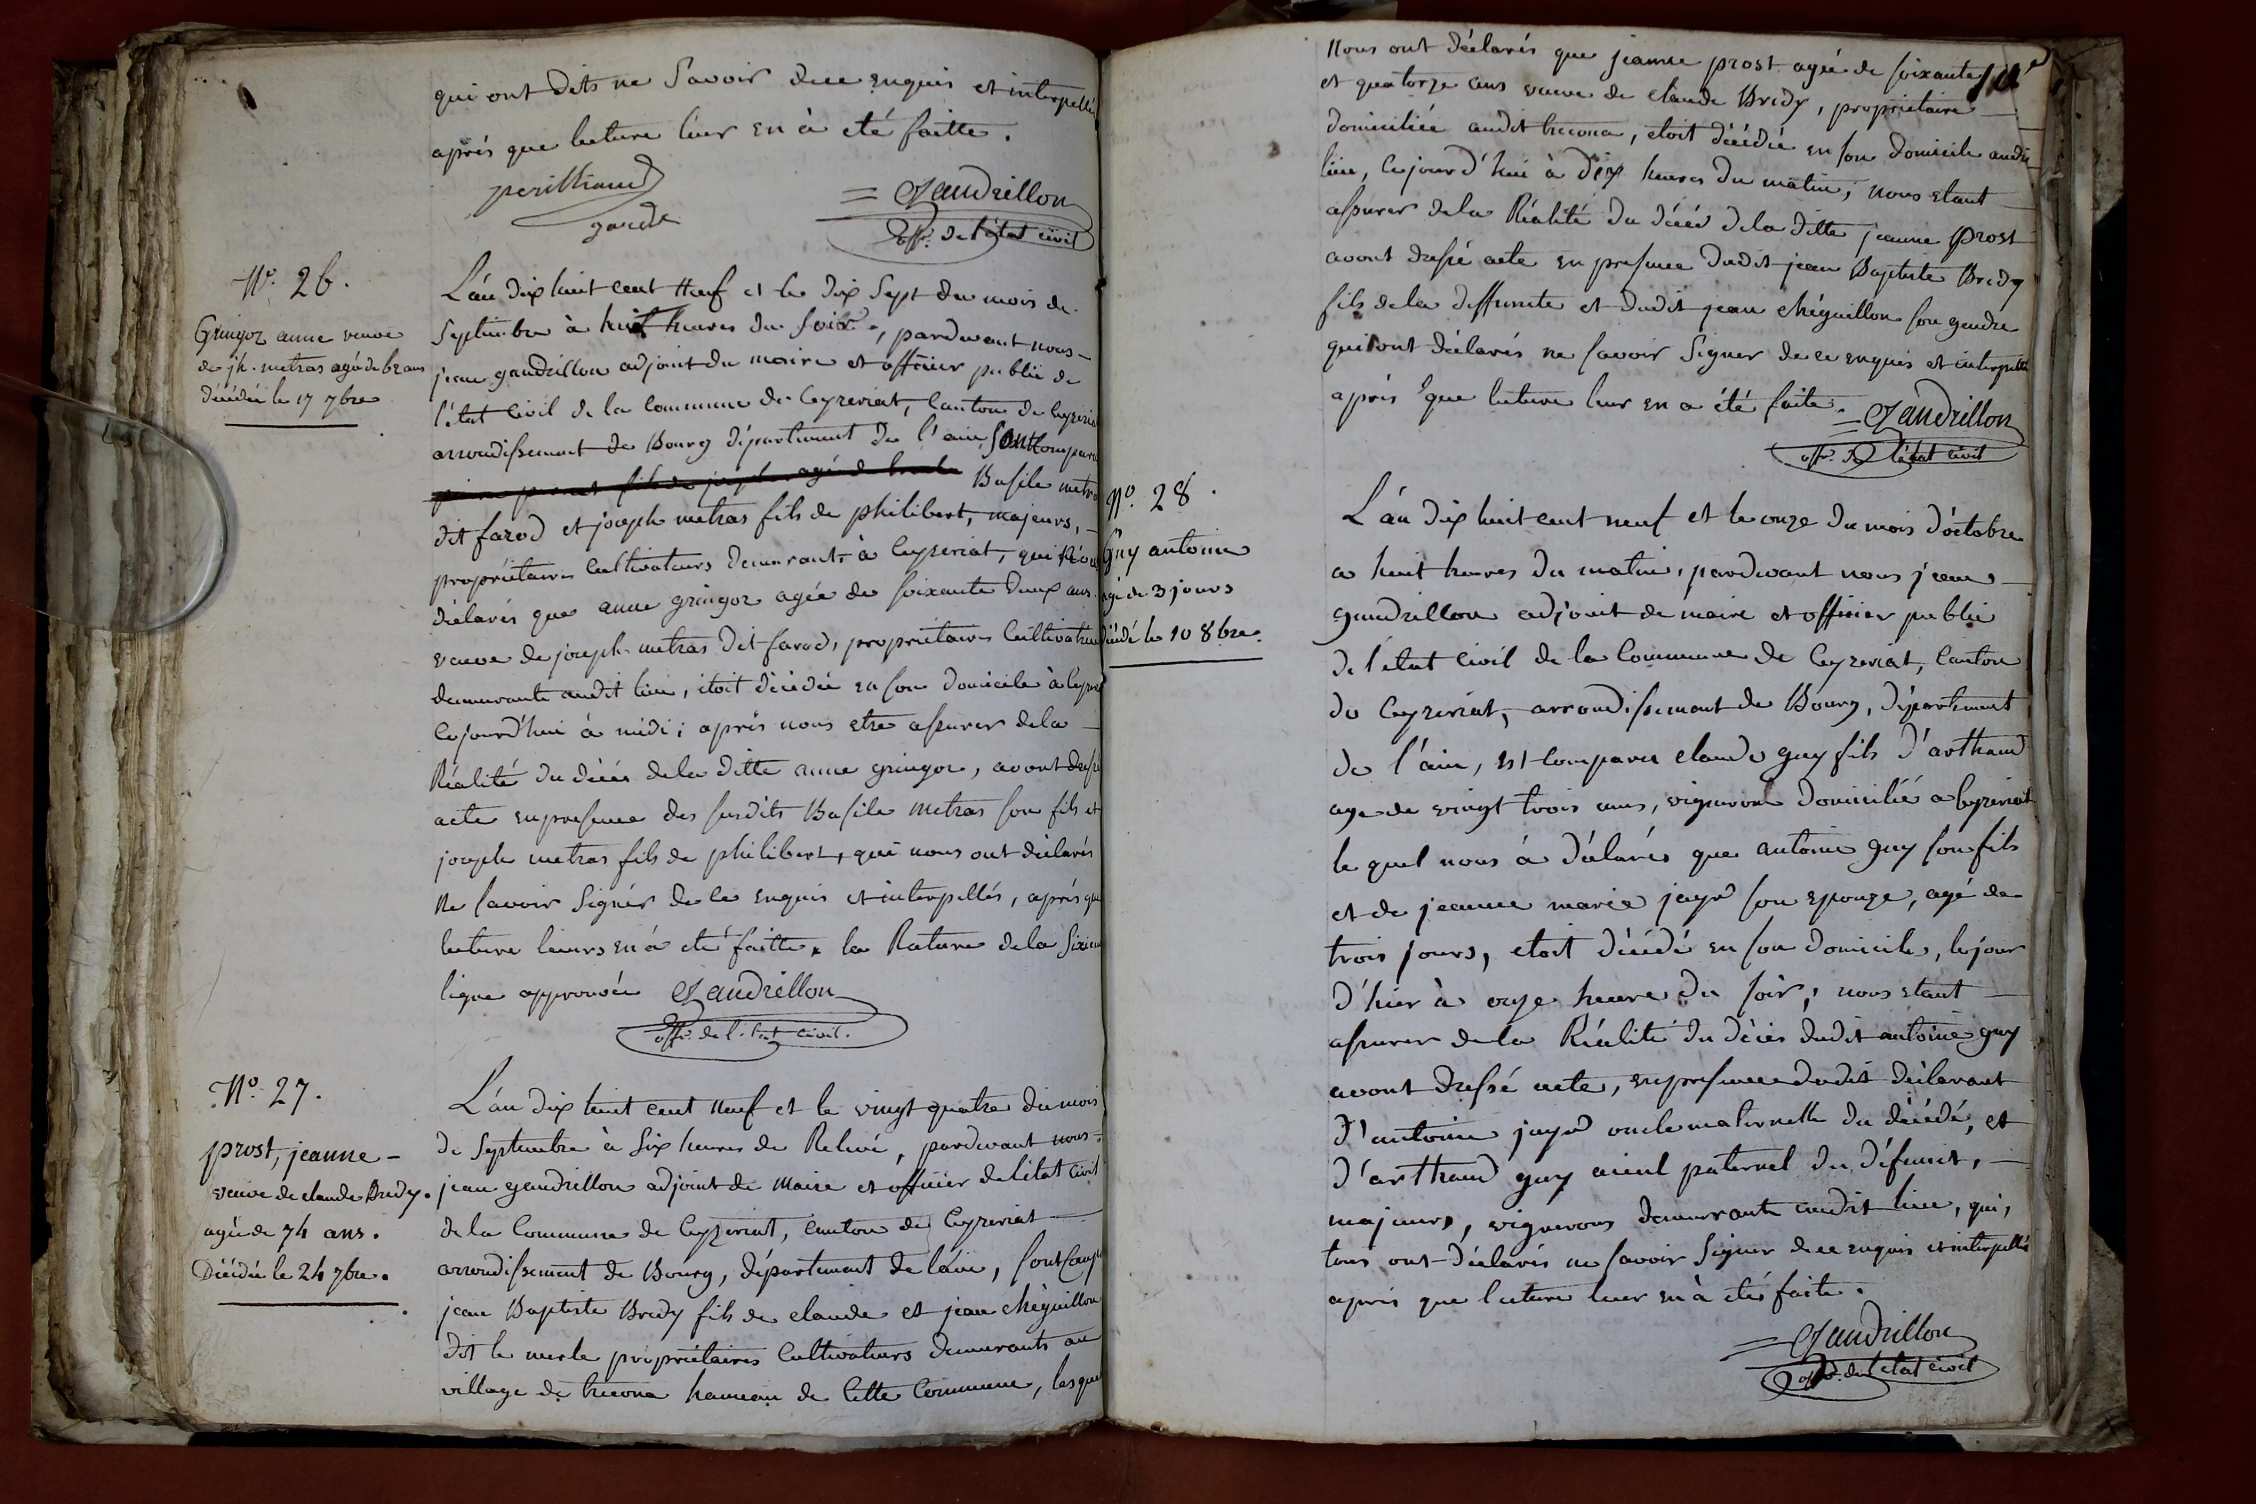 qui ont dits ne Savoir de ce enquis et interpellés
après que lecture leur en à eté faitte.
perilliaud
garde
= Gandrillon
off. de l'état civil
N°. 26.
Gringoz anne veuve
de jh. metras agée de 62 ans
décédée le 17 7bre
L'an dix huit cent neuf et le dix Sept du mois de
Septembre à huit heures du soir, pardevant nous
jean gandrillon adjoint du maire et officier public de
l'état civil de la commune de Ceyzeriat, Canton de Ceyzeriat
arrondissement de Bourg département de l'ain, Sont comparu
Basile metras
dit farod et joseph metras fils de philibert, majeurs,
propriétaires Cultivateurs demeurants à Ceyzeriat, qui
déclarés que anne gringoz agée de soixante deux ans
veuve de joseph metras dit farod, propriétaire Cultivatrice
demeurante audit lieu, étoit décédée en son domicile à
Cejourd'hui à midi; après nous etre assurer de la
Réalité du décès de la ditte anne gringoz, avont dressé
acte en presence des susdits Basile metras son fils et
joseph metras fils de philibert, qui nous ont déclarés
ne savoir Signér de ce enquis et interpellés, après que
lecture leurs en à eté faitte. la Rature de la Sixieme
ligne approuvée Gandrillon
off. de l'état civil.
N°. 27.
prost, jeanne
veuve de claude Bredy.
agée de 74 ans.
Décédée le 24 7bre.
L'an dix huit cent neuf et le vingt quatre du mois
de Septembre à Six heures de Relevé, pardevant nous
jean gandrillon adjoint de Maire et officier de l'état civil
de la Commune de Ceyzeriat, Canton de Ceyzeriat
arrondissement de Bourg, département de l'ain, sont comp
jean Baptiste Bredy fils de claude et jean chéguillon
dit le merle propriétaires Cultivateurs demeurants au
village de hameau de Cette Commune, lesquels
nous ont déclarés que jeanne prost agée de soixante
et quatorze ans veuve de claude Bredy, propriétaire
domiciliée audit, étoit décédée en son domicile audit
lieu, Cejourd'hui à dix heures du matin; nous etant
assurer de la Réalité du décès de la ditte jeanne prost
avont dressé acte en presence dudit jean Baptiste Bredy
fils de la deffunte et dudit jean chéguillon son gendre
qui ont déclarés ne savoir Signer de ce enquis et interpellés
après que lecture leur en a été faite. = Gandrillon
off. de l'état civil
N°. 28.
Guy antoine
agé de 3 jours
décédé le 10 8bre.
L'an dix huit cent neuf et le onze du mois d'octobre
a huit heures du matin, pardevant nous jean
gandrillon adjoint de maire et officier public
de l'état civil de la Commune de Ceyzeriat, Canton
de Ceyzeriat, arrondissement de Bourg, département
de l'ain, est comparu claude guy fils d'arthaud
age de vingt trois ans, vigneron domicilié a Ceyzeriat
le quel nous à déclarés que antoine guy son fils
et de jeanne marie jayr son epouze, agé de
trois jours, etoit décédé en son domicile, le jour
d'hier à onze heure du soir, nous etant
assurer de la Réalité du décès dudit antoine guy
avont dressé acte, en presence dudit déclarant
d'antoine jayr oncle maternelle du décédé, et
d'arthaud guy aieul paternel du défunt,
majeurs, vignerons demeurants audit lieu, qui,
tous ont déclarés ne savoir Signer de ce enquis et interpellés
après que lecture leur en à eté faite.
= Gandrillon
off. de l'état civil